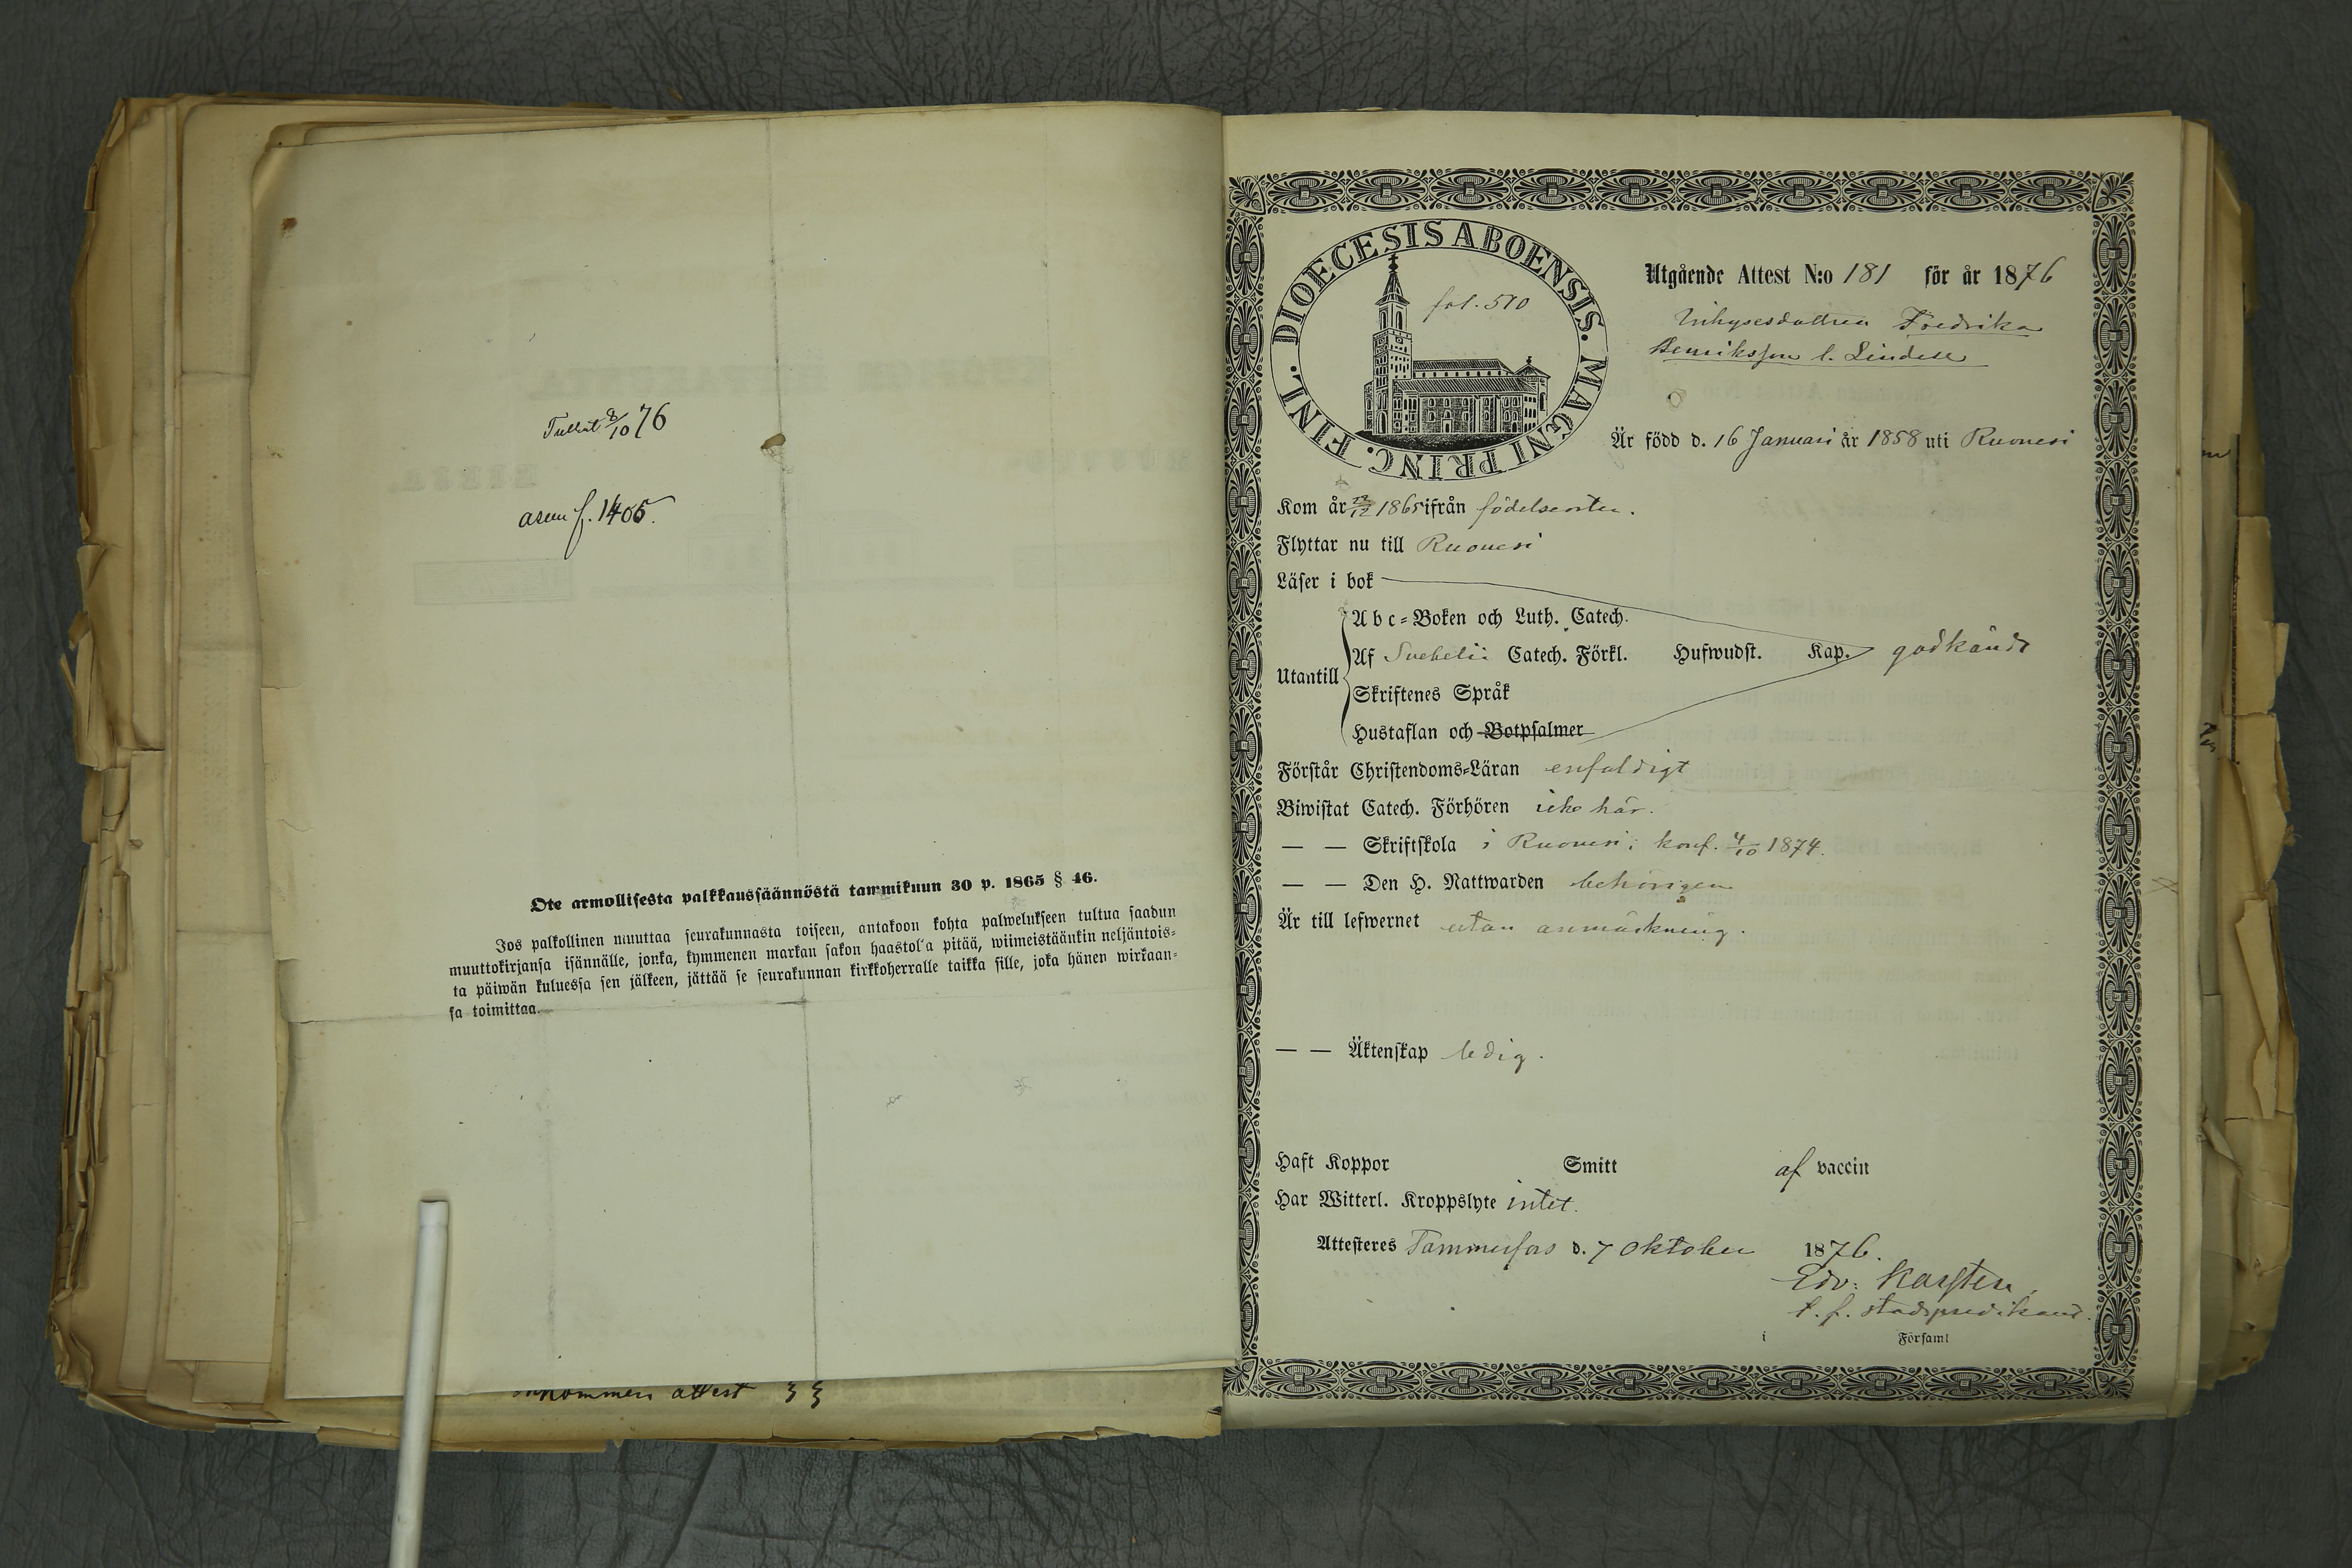 Tullut 8/10 76
asuu f. 1405.
Ote armollisesta palkkaussäännöstä tammikuun 30 p. 1865 § 46.
Jos palkollinen muuttaa seurakunnasta toiseen, antakoon kohta palwelukseen tultua saadun
muuttokirjansa isännälle, jonka, kymmenen markan sakon haastolla pitää, wiimeistäänkin neljäntois-
ta päiwän kuluessa sen jälkeen, jättää se seurakunnan kirkkoherralle taikka sille, joka hänen wirkaan-
sa toimittaa.
Inkommen attest
DIOECESIS ABOENSIS. MAGNI PRINC. FINL.
fol. 510
Utgående Attest N:o 181 för år 1876
Inhysesdottren Fredrika
Henriksson l. Lindell
Är född d. 16 Januari år 1858 uti Ruovesi
Kom år 1865 ifrån födelseorten.
Flyttar nu till Ruovesi
Läser i bok
Utantill
Abc-Boken och Luth. Catech.
Af Svebelii Catech. Förkl. Hufwudst. Kap. godkändt
Skriftenes Språk
Hustaflan och Botpsalmer
Förstår Christendoms-Läran enfaldigt
Biwistat Catech. Förhören icke här.
— — Skriftskola i Ruovesi; konf. 4/10 1874.
— — Den H. Nattwarden behörigen
Är till lefwernet utan anmärkning.
— — Äktenskap ledig.
Haft Koppor Smitt af vaccin
Har Witterl. Kroppslyte intet.
Attesteres Tammerfors d. 7 Oktober 1876.
Edv: Karsten,
t. f. stadspredikant.
i Församl